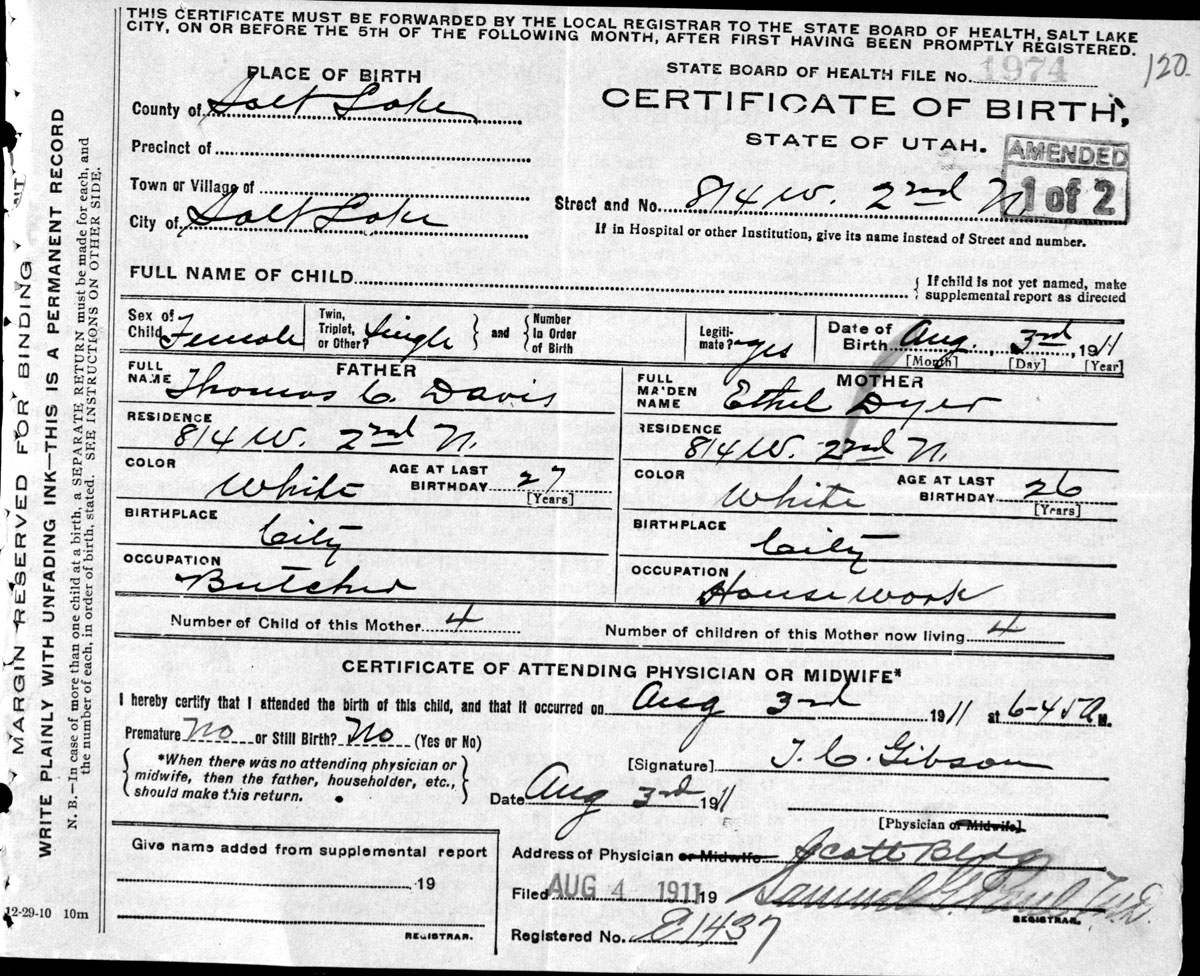 THIS CERTIFICATE MUST BE FORWARDED BY THE LOCAL REGISTRAR TO THE STATE BOARD OF HEALTH, SALT LAKE
CITY, ON OR BEFORE THE 5TH OF THE FOLLOWING MONTH, AFTER FIRST HAVING BEEN PROMPTLY REGISTERED.
120
PLACE OF BIRTH
STATE BOARD OF HEALTH FILE No. 1974
County of Salt Lake
CERTIFICATE OF BIRTH,
STATE OF UTAH.
Precinct of
AMENDED
1 of 2
Town or Village of
Street and No. 814 W. 2nd N
City of Salt Lake
If in Hospital or other Institution, give its name instead of Street and number.
FULL NAME OF CHILD
{ If child is not yet named, make
supplemental report as directed
Sex of Child Female
Twin, Triplet, or Other? Single } and { Number In Order of Birth
Legiti-mate? yes
Date of Birth Aug. 3rd, 1911
[Month] [Day] [Year]
FATHER
FULL NAME Thomas C. Davis
MOTHER
FULL MAIDEN NAME Ethel Dyer
RESIDENCE 814 W. 2nd N.
RESIDENCE 814 W. 22nd N.
COLOR White AGE AT LAST BIRTHDAY 27 [Years]
COLOR White AGE AT LAST BIRTHDAY 26 [Years]
BIRTHPLACE City
BIRTHPLACE City
OCCUPATION Butcher
OCCUPATION Housework
Number of Child of this Mother 4
Number of children of this Mother now living 4
CERTIFICATE OF ATTENDING PHYSICIAN OR MIDWIFE*
I hereby certify that I attended the birth of this child, and that it occurred on Aug 3rd 1911 at 6-45 A M.
Premature No or Still Birth? No (Yes or No)
{ *When there was no attending physician or
midwife, then the father, householder, etc.,
should make this return. }
[Signature] T. C. Gibson
Date Aug 3rd 1911
[Physician or Midwife]
Give name added from supplemental report
19
REGISTRAR.
Address of Physician or Midwife Scott Bldg
Filed AUG 4 1911 19
Samuel G. Paul M.D.
REGISTRAR.
Registered No. 21437
12-29-10 10m
MARGIN RESERVED FOR BINDING
WRITE PLAINLY WITH UNFADING INK—THIS IS A PERMANENT RECORD
N. B.—In case of more than one child at a birth, a SEPARATE RETURN must be made for each, and
the number of each, in order of birth, stated. SEE INSTRUCTIONS ON OTHER SIDE.